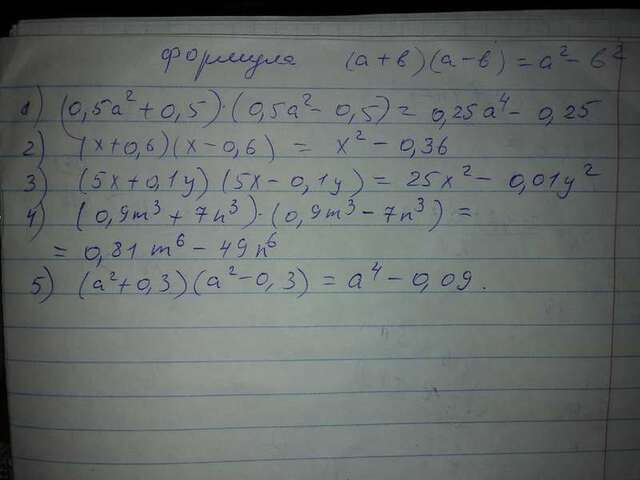 формула (a+b)(a-b) = a² - b²
1) (0,5a² + 0,5)·(0,5a² - 0,5) = 0,25a⁴ - 0,25
2) (x+0,6)(x-0,6) = x² - 0,36
3) (5x+0,1y)(5x-0,1y) = 25x² - 0,01y²
4) (0,9m³ + 7n³)·(0,9m³ - 7n³) =
= 0,81m⁶ - 49n⁶
5) (a²+0,3)(a²-0,3) = a⁴ - 0,09.